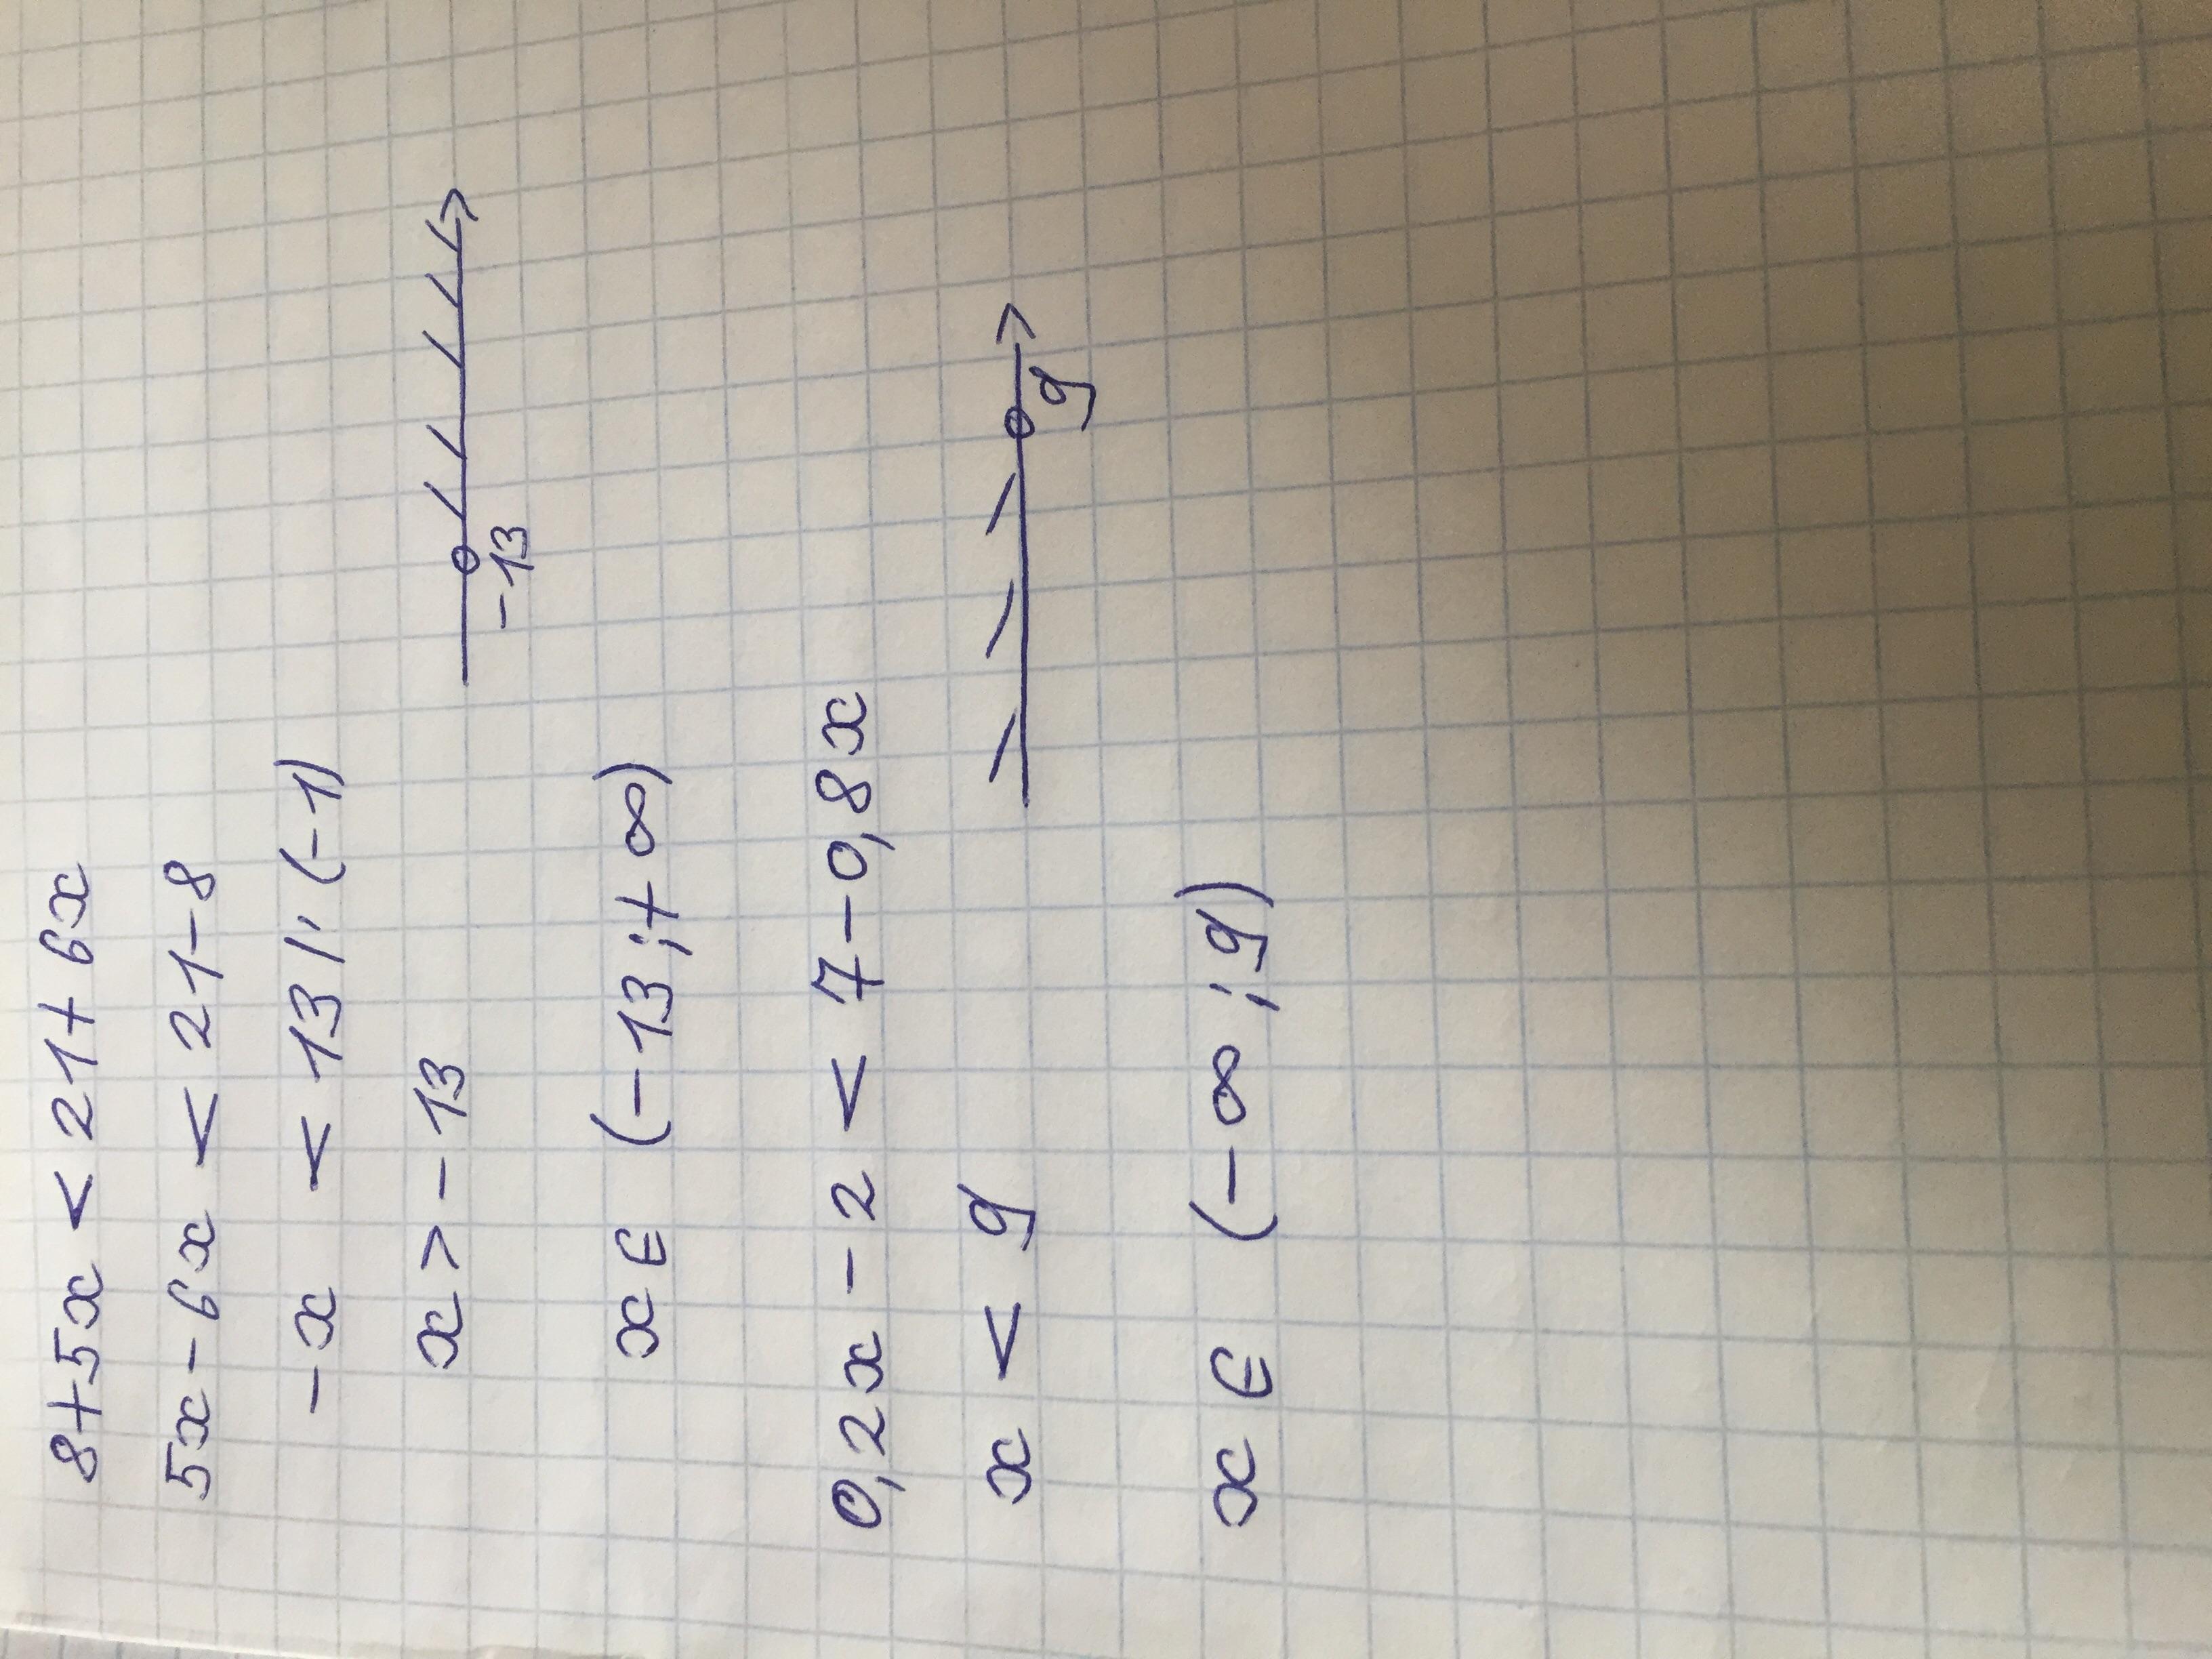 8+5x < 21+6x
5x-6x < 21-8
-x < 13 |·(-1)
x > -13
-13
x ∈ (-13;+∞)
0,2x-2 < 7-0,8x
x < 9
9
x ∈ (-∞;9)